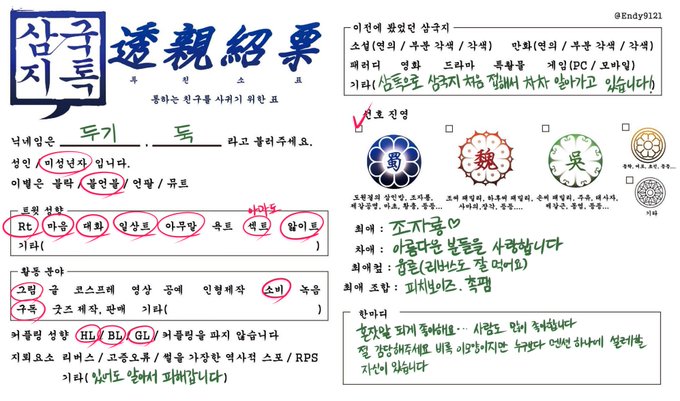 삼국지톡
透親紹票
투친소표
통하는 친구를 사귀기 위한 표
닉네임은 두기 . 둑 라고 불러주세요.
성인 / 미성년자 입니다.
이별은 블락 / 블언블 / 언팔 / 뮤트
트윗 성향
아마도
Rt 마음 대화 일상트 아무말 욕트 섹트 앓이트
기타( )
활동 분야
그림 글 코스프레 영상 공예 인형제작 소비 녹음
구독 굿즈 제작, 판매 기타( )
커플링 성향 HL / BL / GL / 커플링을 파지 않습니다
지뢰요소 리버스 / 고증오류 / 썰을 가장한 역사적 스포 / RPS
기타 (있어도 알아서 피해갑니다)
@Endy9121
이전에 봤었던 삼국지
소설(연의 / 부분 각색 / 각색) 만화(연의 / 부분 각색 / 각색)
패러디 영화 드라마 특촬물 게임(PC / 모바일)
기타(삼톡으로 삼국지 처음 접해서 차차 알아가고 있습니다!)
선호 진영
蜀
魏
吳
도원결의 삼인방, 조자룡,
제갈공명, 마초, 황충, 등등....
조씨 패밀리, 하후씨 패밀리,
사마의, 장각, 등등....
손씨 패밀리, 주유, 태사자,
제갈근, 여몽, 등등....
동탁, 여포, 초선, 등등...
기타
최애 : 조자룡♡
차애 : 아름다운 분들을 사랑합니다
최애컾 : 융른(리버스도 잘 먹어요)
최애 조합 : 피치보이즈. 촉팸
한마디
혼잣말 되게 좋아해요... 사람도 많이 좋아합니다
절 감당해주세요 비록 이모양이지만 누구보다 멘션 하나에 설레할
자신이 있습니다